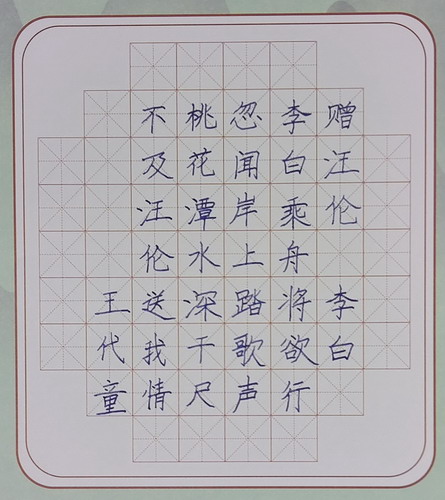 赠汪伦
李白
李白乘舟将欲行
忽闻岸上踏歌声
桃花潭水深千尺
不及汪伦送我情
王代童